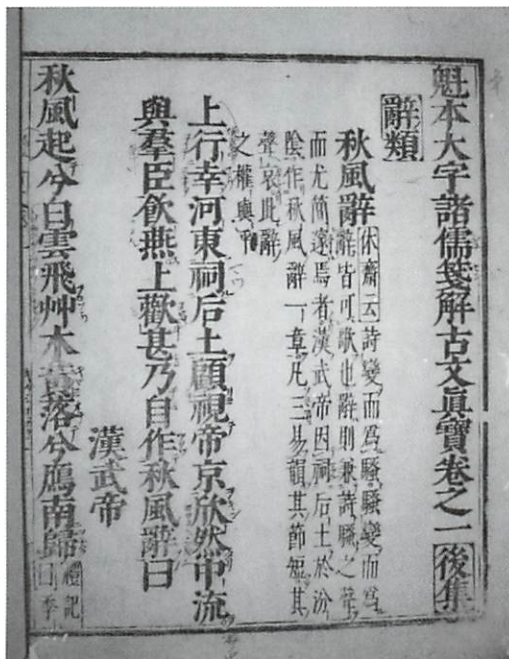 魁本大字諸儒箋解古文眞寶卷之一後集
辭類
秋風辭休齋云詩變而爲騷騷變而爲
辭皆可歌也辭則兼詩騷之聲
而尤簡邃焉者漢武帝因祠后土於汾
陰作秋風辭一章凡三易韻其節短其
聲哀此辭
之權輿乎
上行幸河東祠后土顧視帝京欣然中流
與羣臣飮燕上歡甚乃自作秋風辭曰
漢武帝
秋風起兮白雲飛艸木黃落兮鴈南歸禮記
曰季